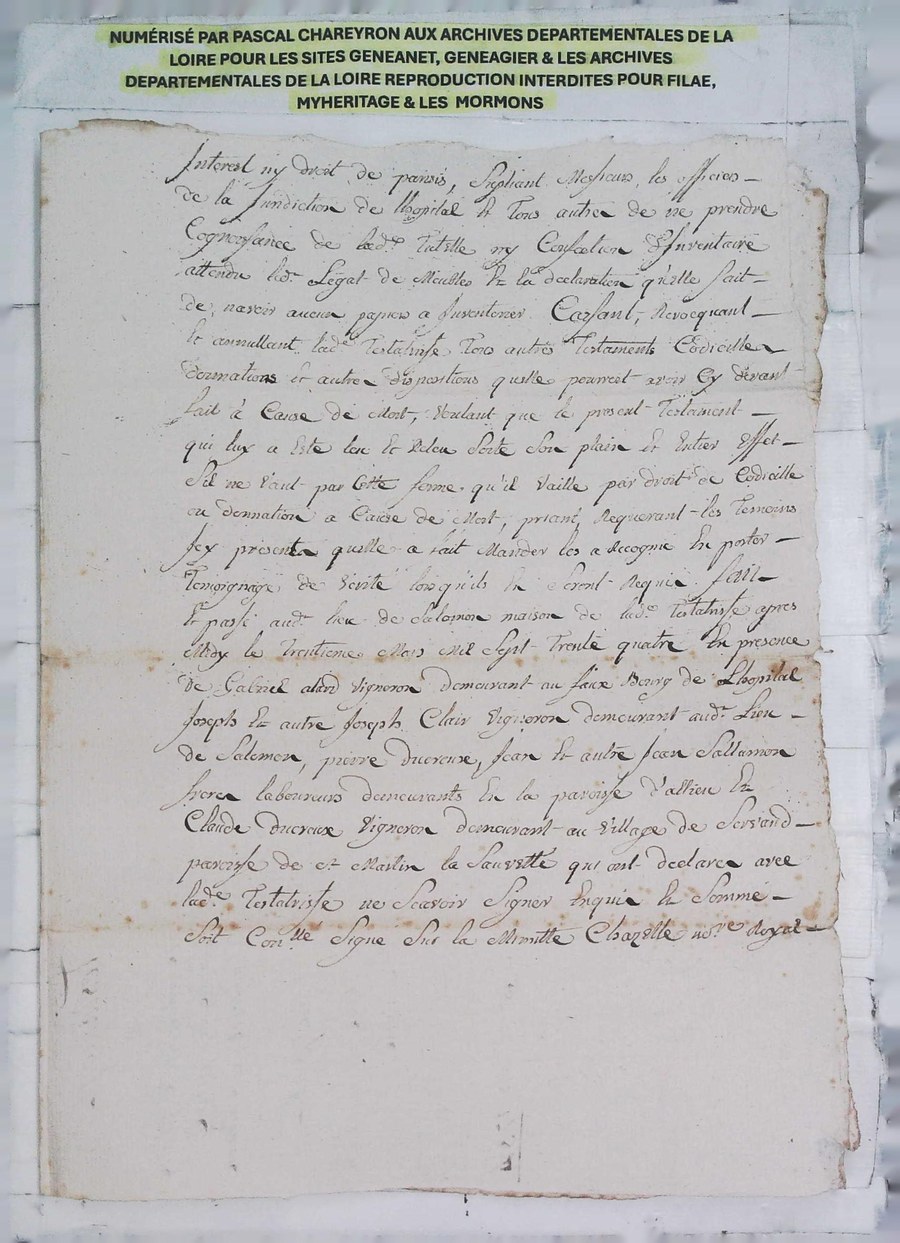 NUMÉRISÉ PAR PASCAL CHAREYRON AUX ARCHIVES DEPARTEMENTALES DE LA
LOIRE POUR LES SITES GENEANET, GENEAGIER & LES ARCHIVES
DEPARTEMENTALES DE LA LOIRE REPRODUCTION INTERDITES POUR FILAE,
MYHERITAGE & LES MORMONS
Interest ny droit de parisis, Supliant Messieurs les officiers
de la Juridiction de lhopital & Tous autres de ne prendre
Cognoissance de lad.e Tutelle ny Confection d'Inventaire
attendu led. Légat de Meubles Et la declaration qu'elle fait
de navoir aucun papiers a Inventorier. Cassant, Revocquant
Et annullant lad.e Testatrisse Tous autres Testaments Codicilles
donnations Et autres dispositions quelle pourroit avoir Cy devant
fait à Cause de Mort, Voulant que le present Testament
qui luy a Esté leu Et Releu Sorte Son plain Et Entier Effet
S'il ne Vaut par Cette forme qu'il Vaille par droit de Codicille
ou donnation a Cause de Mort, priant, Requerant les Temoins
Icy presents quelle a fait Mander les a Recognu En porter
Temoignage de Vérité lorsqu'ils En Seront Requis. fait
Et passé aud. lieu de Salomon maison de lad.e Testatrisse apres
Midy le Trentieme Mars Mil Sept Trente quatre En presence
de Gabriel alard Vigneron demeurant au faux Bourg de Lhopital
Joseph Et autre Joseph Clair Vigneron demeurant aud. Lieu
de Salomon, pierre Ducreux, Jean Et autre Jean Sallamon
freres laboureurs demeurants En la paroisse d'allieu Et
Claude Ducreux Vigneron demeurant au Village de
paroisse de St Martin la Sauvetté qui ont declarés avec
lad.e Testatrisse ne Scavoir Signer Enquis Et Sommé
Soit Con.llé Signe Sur la Minutte Chazelle no.re Royal